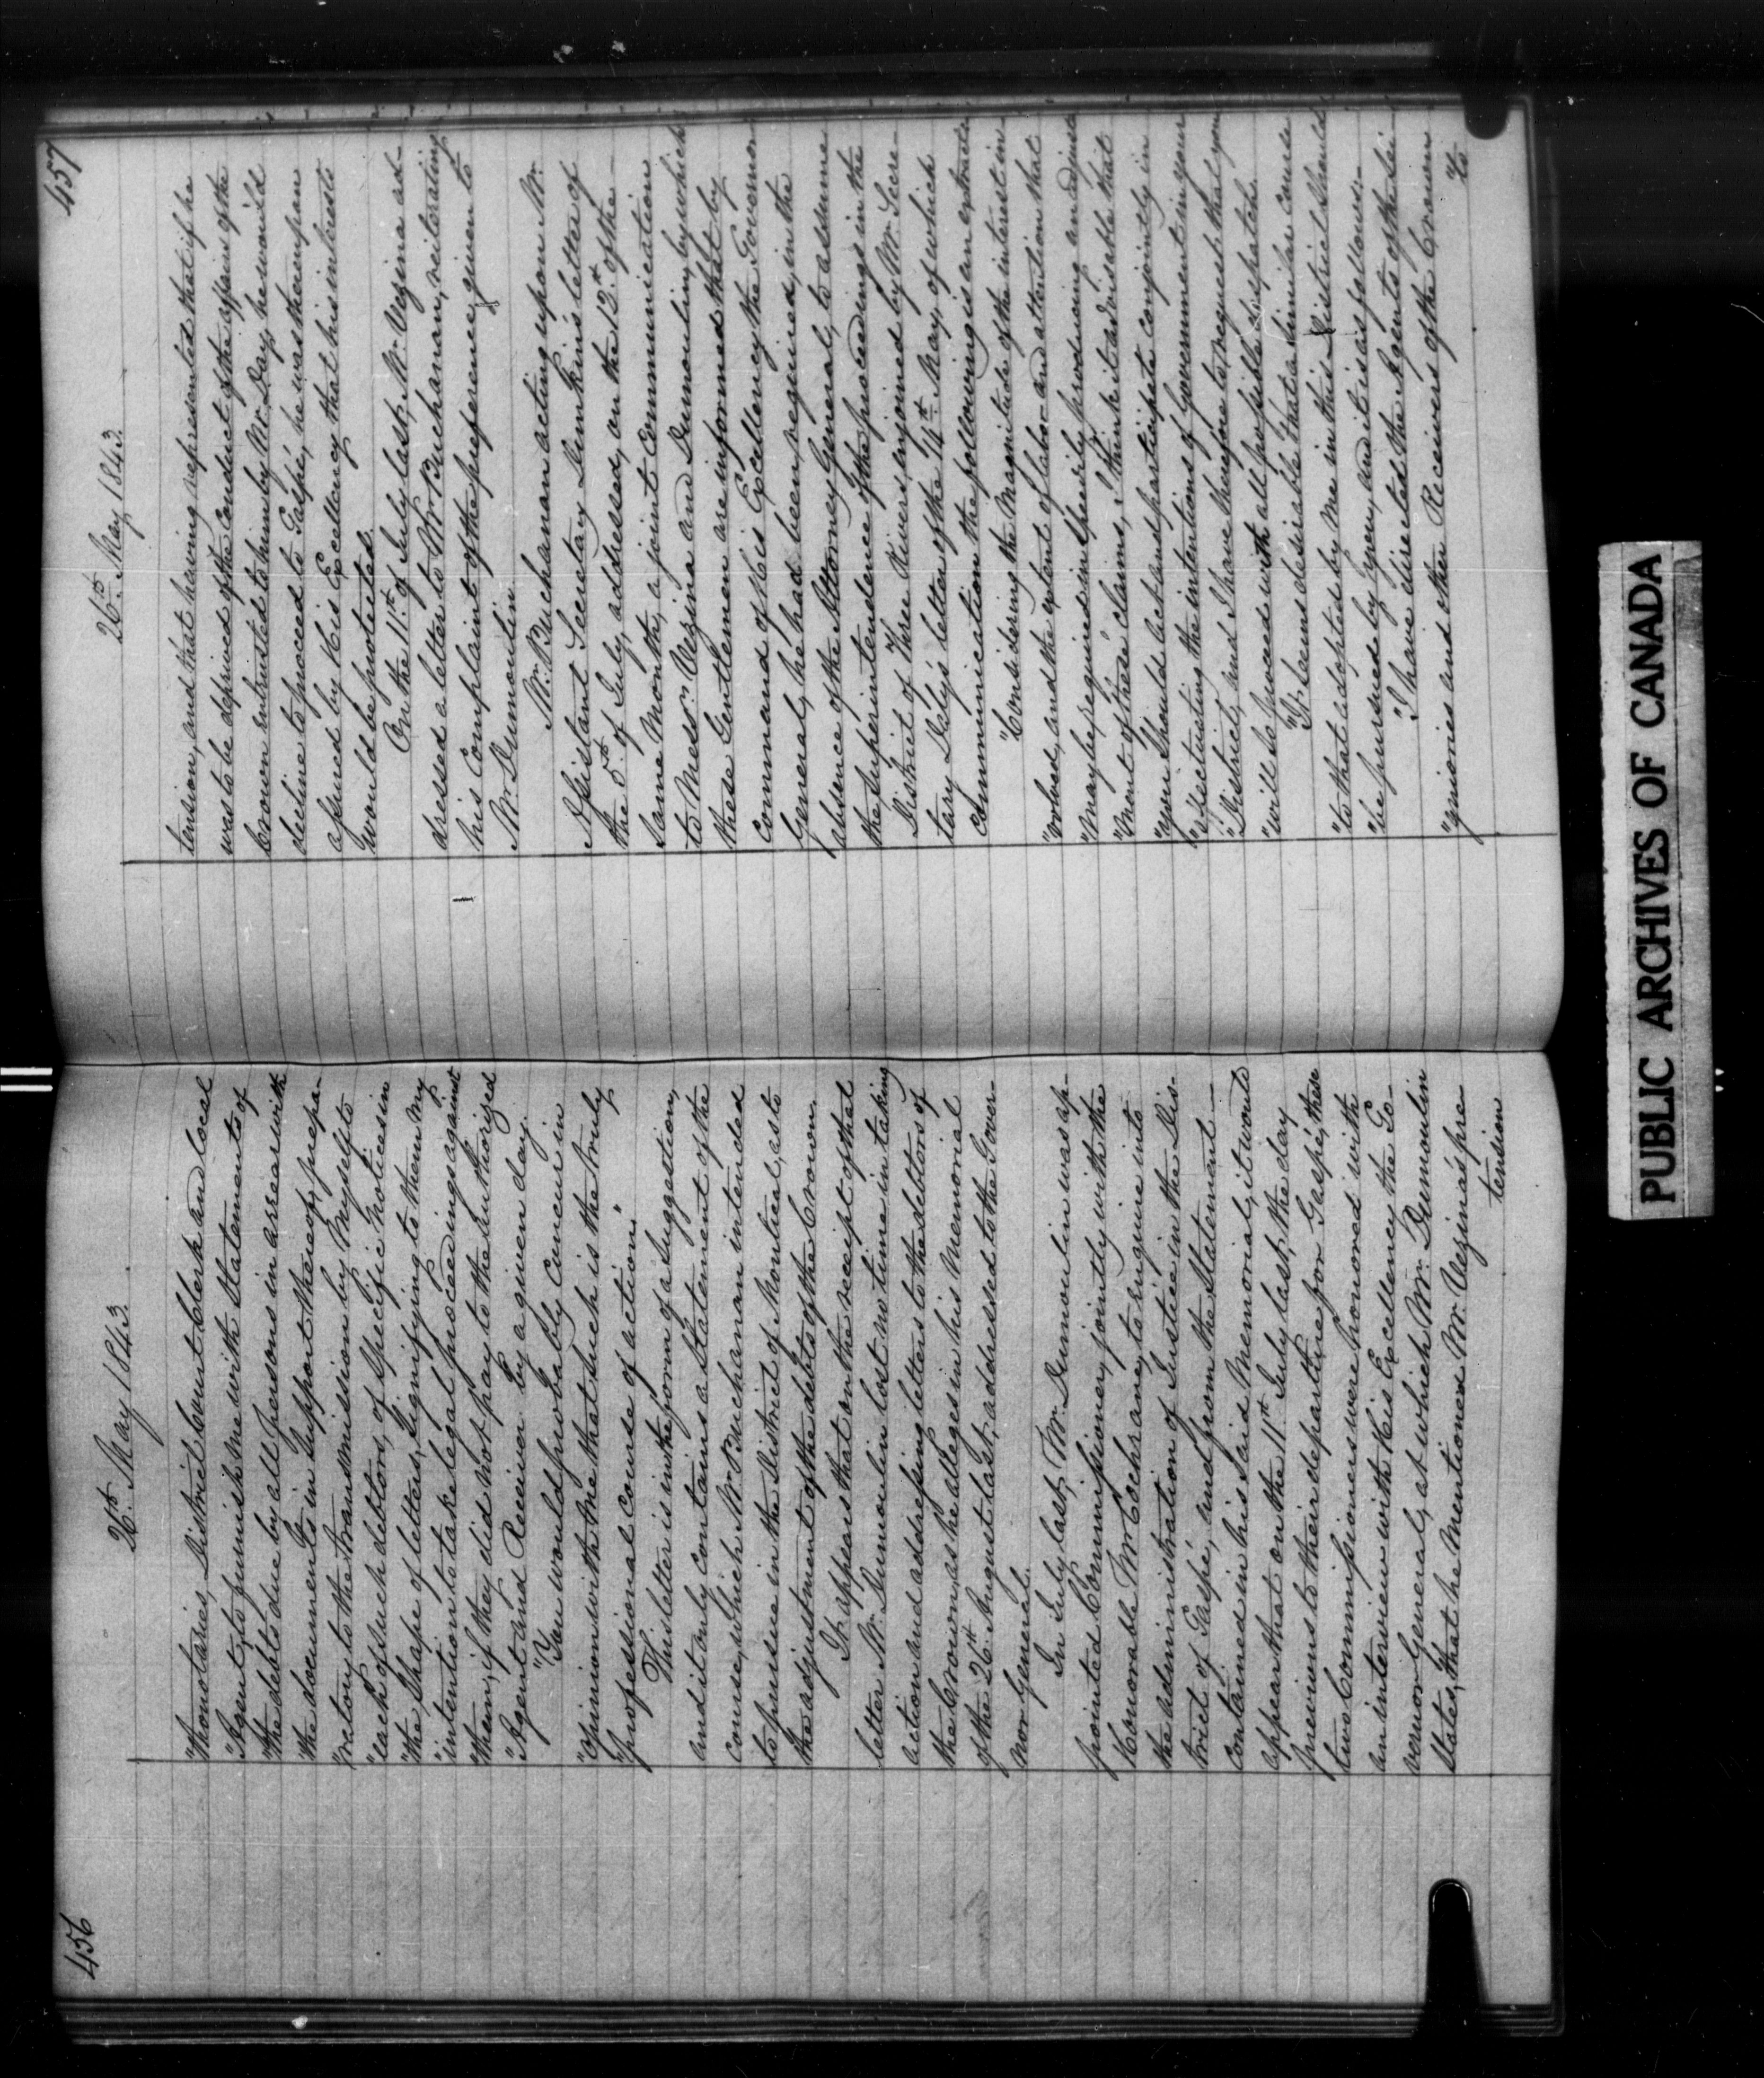 456
26th. May 1843.
"thonotaries, District Court Clerk and local
"Agents, to furnish me with Statements of
"the debts due by all persons in arrear with
"the documents in support thereof, prepa-
"ratory to the transmission by myself to
"each of such debtors, of specific notices in
"the Shape of letters, signifying to them my
"intention to take legal proceedings against
"them, if they did not pay to the authorized
"Agent and Receiver by a given day.
"You would probably concur in
"opinion with me that such is the truly
"professional course of action."
This letter is in the form of a suggestion,
and it only contains a Statement of the
course, which Mr. Buchanan intended
to pursue in the District of Montreal, as to
the adjustment of the debts of the Crown.
It appears that on the receipt of that
letter Mr. Dumoulin lost no time in taking
action and addressing letters to the debtors of
the Crown, as he alleges in his Memorial
of the 26th. August last, addressed to the Gover-
nor General.
In July last, Mr. Dumoulin was ap-
pointed Commissioner, jointly with the
Honorable Mr. Cochrane, to enquire into
the administration of Justice in the Dis-
trict of Gaspé, and from the Statement
contained in his said Memorial, it would
appear that on the 11th. July last, the day
previous to their departure for Gaspé, these
two Commissioners were honored with
an interview with His Excellency the Go-
vernor General, at which Mr. Dumoulin
states, that he mentioned Mr. Vezina's pre-
tension
457
26th. May 1843.
tension, and that having represented that if he
was to be deprived of the conduct of the affairs of the
Crown intrusted to him by Mr. Day, he would
decline to proceed to Gaspé, he was thereupon
assured by His Excellency that his interests
would be protected.
On the 11th. of July last, Mr. Vezina ad-
dressed a letter to Mr. Buchanan, reiterating
his complaint of the preference given to
Mr. Dumoulin.
Mr. Buchanan acting upon Mr.
Assistant Secretary Hopkirk's letter of
the 5th. of July, addressed, on the 13th. of the
same Month, a joint Communication
to Messrs. Vezina and Dumoulin, by which
these Gentlemen are informed that by
command of His Excellency the Governor
General, he had been required, in the
absence of the Attorney General, to assume
the superintendence of the proceedings in the
District of Three Rivers enjoined by Mr. Secre-
tary Daly's letter of the 14th. May, of which
communication the following is an extract.
"Considering the Magnitude of the interest in-
"volved, and the extent of labor and attention that
"may be required in speedily producing an adjust-
"ment of these claims, I think it advisable that
"you should each and participate conjointly in
"effectuating the intentions of Government in your
"District, and I have therefore to request that you
"will so proceed with all possible despatch.
"It seems desirable that a similar course
"to that adopted by me in this District should
"be pursued by you, and it is as follows.
"I have directed the Agents of the Sei-
"gniories and other Receivers of the Crown
to
PUBLIC ARCHIVES OF CANADA